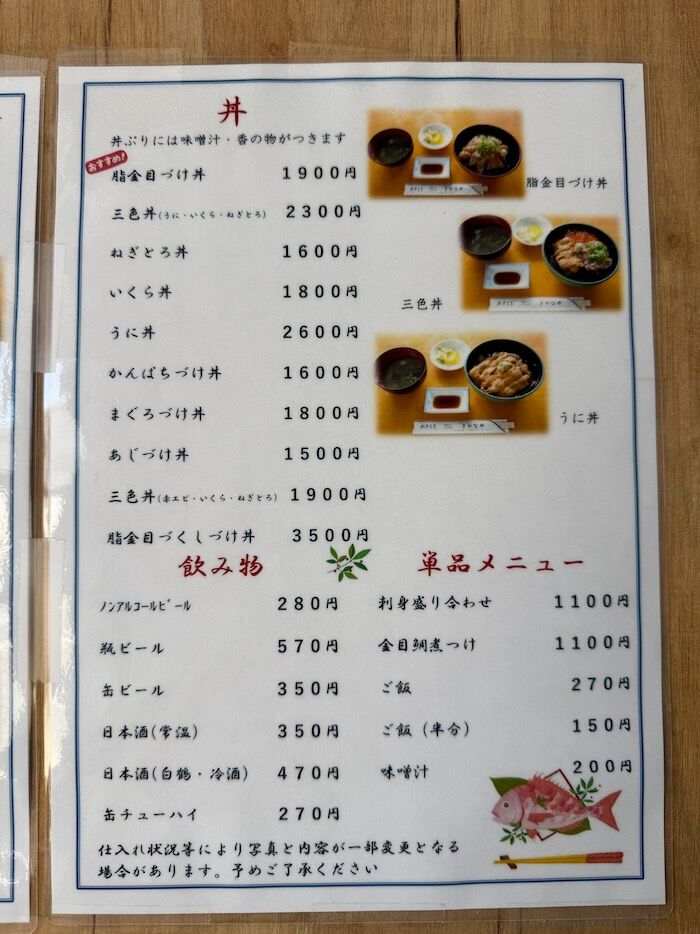 丼
丼ぶりには味噌汁・香の物がつきます
おすすめ!
脂金目づけ丼 1900円
三色丼(うに・いくら・ねぎとろ) 2300円
ねぎとろ丼 1600円
いくら丼 1800円
うに丼 2600円
かんぱちづけ丼 1600円
まぐろづけ丼 1800円
あじづけ丼 1500円
三色丼(赤エビ・いくら・ねぎとろ) 1900円
脂金目づくしづけ丼 3500円
脂金目づけ丼
三色丼
うに丼
飲み物
ノンアルコールビール 280円
瓶ビール 570円
缶ビール 350円
日本酒(常温) 350円
日本酒(白鶴・冷酒) 470円
缶チューハイ 270円
単品メニュー
刺身盛り合わせ 1100円
金目鯛煮つけ 1100円
ご飯 270円
ご飯(半分) 150円
味噌汁 200円
仕入れ状況等により写真と内容が一部変更となる
場合があります。予めご了承ください